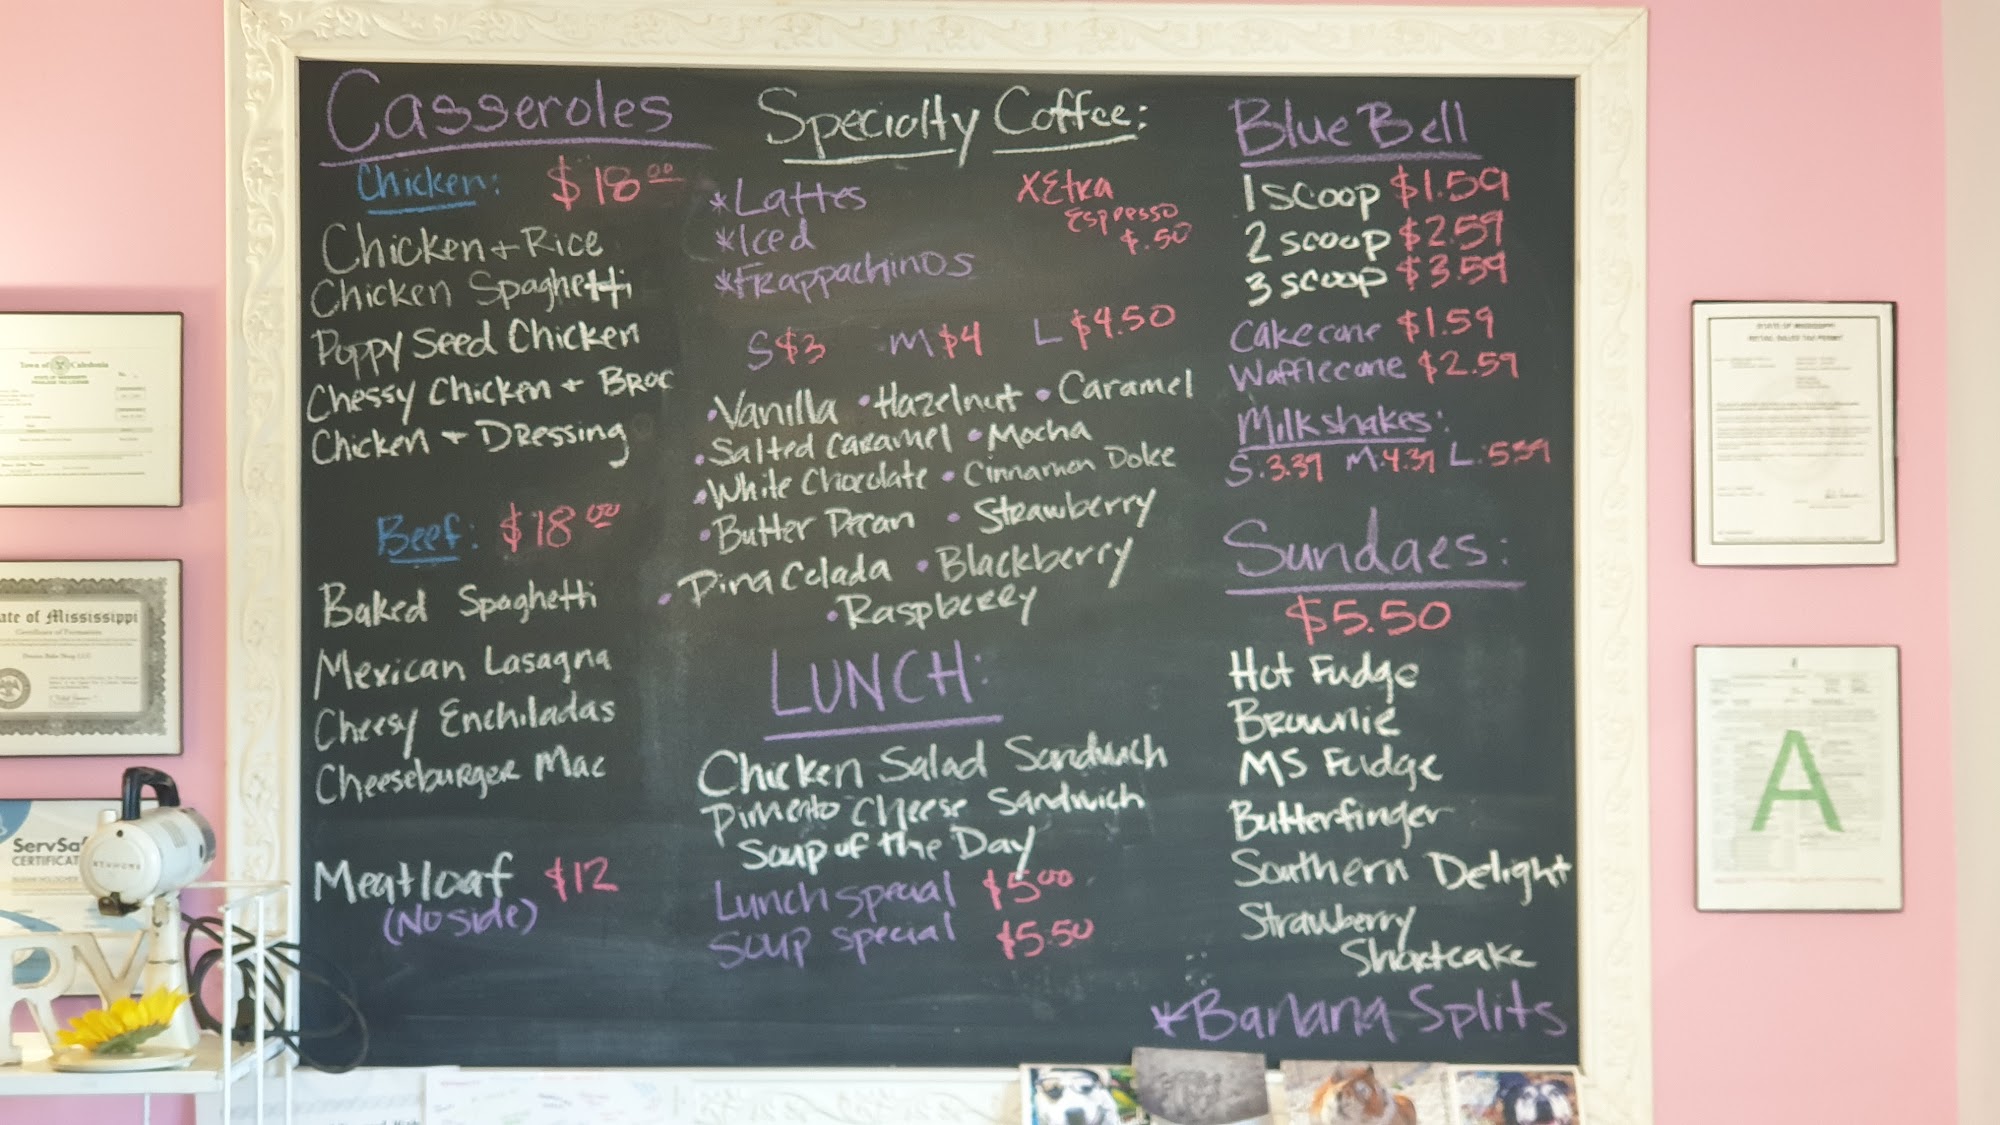 Casseroles
Chicken: $18.00
Chicken + Rice
Chicken Spaghetti
Poppy Seed Chicken
Chessy Chicken + Broc
Chicken + Dressing
Beef: $18.00
Baked Spaghetti
Mexican Lasagna
Cheesy Enchiladas
Cheeseburger Mac
Meatloaf $12
(No side)
Specialty Coffee:
*Lattes
*Iced
*Frappachinos
XEtra
Espresso
$.50
S $3 M $4 L $4.50
•Vanilla •Hazelnut •Caramel
•Salted Caramel •Mocha
•White Chocolate •Cinnamon Dolce
•Butter Pecan •Strawberry
•Pina Colada •Blackberry
•Raspberry
LUNCH:
Chicken Salad Sandwich
Pimento Cheese Sandwich
Soup of the Day
Lunch special $5.00
Soup special $5.50
Blue Bell
1 scoop $1.59
2 scoop $2.59
3 scoop $3.59
Cakecone $1.59
Wafflecone $2.59
Milkshakes:
S:3.39 M:4.39 L:5.39
Sundaes:
$5.50
Hot Fudge
Brownie
MS Fudge
Butterfinger
Southern Delight
Strawberry
Shortcake
*Banana Splits
Town of Caledonia
ate of Mississippi
Certificate of Formation
ServSa
CERTIFICAT
RY
STATE OF MISSISSIPPI
RETAIL SALES TAX PERMIT
A